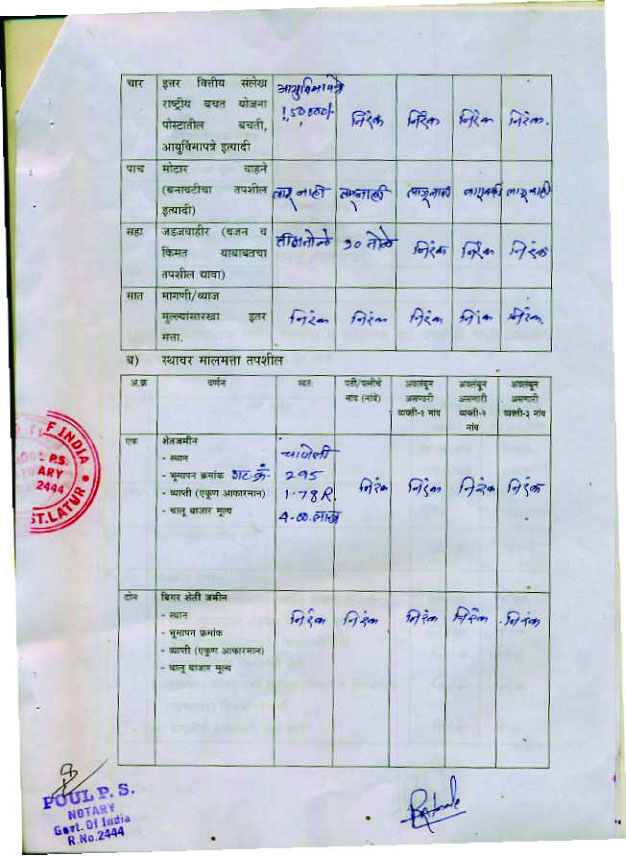 चार इत्तर वित्तीय संलेख आयुर्विमापत्रे
राष्ट्रीय बचत योजना 1,50,000/- निरंक निरंक निरंक निरंक
पोस्टातील बचती,
आयुर्विमापत्रे इत्यादी
पाच मोटार वाहने
(बनावटीचा तपशील लागू नाही लागू नाही लागू नाही लागू नाही लागू नाही
इत्यादी)
सहा जडजवाहीर (वजन व तीन तोळे 30 तोळे निरंक निरंक निरंक
किंमत याबाबतचा
तपशील द्यावा)
सात मागणी/व्याज
मुल्यांसारखा इतर निरंक निरंक निरंक निरंक निरंक
मत्ता.
ब) स्थावर मालमत्ता तपशील
अ.क्र वर्णन स्वतः पती/पत्नीचे अवलंबून अवलंबून अवलंबून
नांव (नांवे) असणारी असणारी असणारी
व्यक्ती-१ नांव व्यक्ती-२ व्यक्ती-३ नांव
नांव
एक शेतजमीन
- स्थान
- भूमापन क्रमांक गट क्रं. 295 निरंक निरंक निरंक निरंक
- व्याप्ती (एकूण आकारमान) 1.78 R.
- चालू बाजार मूल्य 4.00 लाख
दोन बिगर शेती जमीन
- स्थान निरंक निरंक निरंक निरंक निरंक
- भूमापन क्रमांक
- व्याप्ती (एकूण आकारमान)
- चालू बाजार मूल्य
OF INDIA
P.S.
NOTARY
2444
DIST. LATUR
POUL P. S.
NOTARY
Govt. Of India
R.No.2444